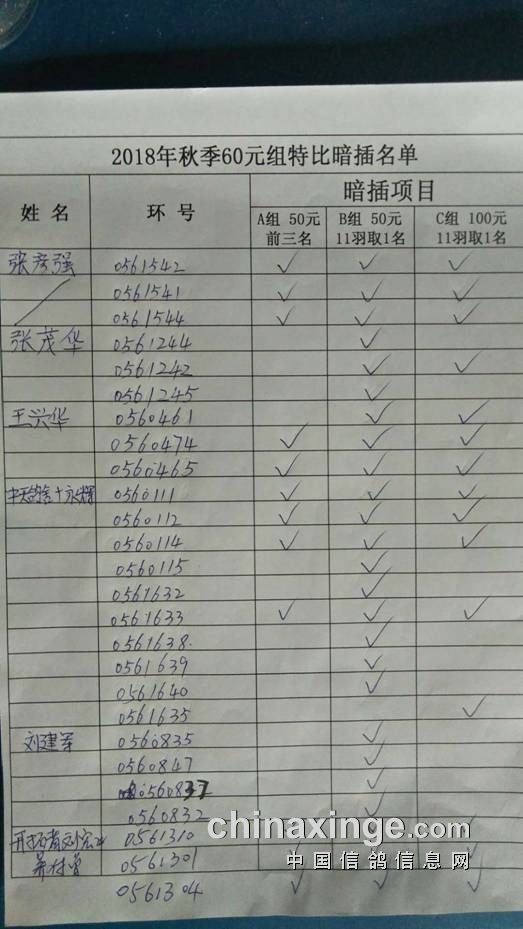 2018年秋季60元组特比暗插名单
姓 名 环 号 暗插项目
A组 50元 B组 50元 C组 100元
前三名 11羽取1名 11羽取1名
张彦强 0561542 ✓ ✓ ✓
0561541 ✓ ✓ ✓
0561544 ✓ ✓ ✓
张茂华 0561244 ✓
0561242 ✓ ✓
0561245 ✓
王兴华 0560461 ✓ ✓
0560474 ✓ ✓ ✓
0560465 ✓ ✓ ✓
0560111 ✓ ✓ ✓
0560112 ✓ ✓ ✓
0560114 ✓ ✓ ✓
0560115 ✓
0561632 ✓
0561633 ✓ ✓ ✓
0561638 ✓
0561639 ✓
0561640 ✓
0561635 ✓
刘建军 0560835 ✓
0560847 ✓
0560837 ✓
0560832 ✓
0561310
0561301
0561304 ✓ ✓ ✓
chinaxinge.com
中国信鸽信息网